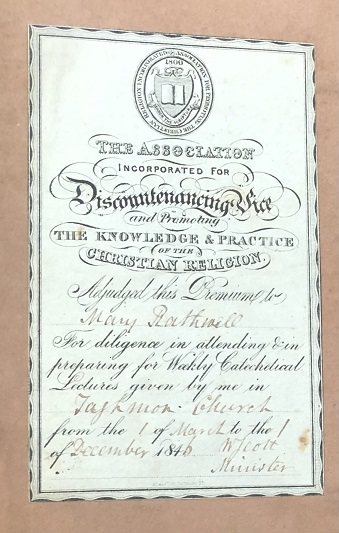 1800
THE ASSOCIATION
INCORPORATED FOR
Discountenancing Vice
and Promoting
THE KNOWLEDGE & PRACTICE
OF THE
CHRISTIAN RELIGION.
Adjudged this Premium to
Mary Rathwell
For diligence in attending & in
preparing for Weekly Catechetical
Lectures given by me in
Taghmon Church
from the 1 of March to the 1
of December 1846 W Scott
Minister